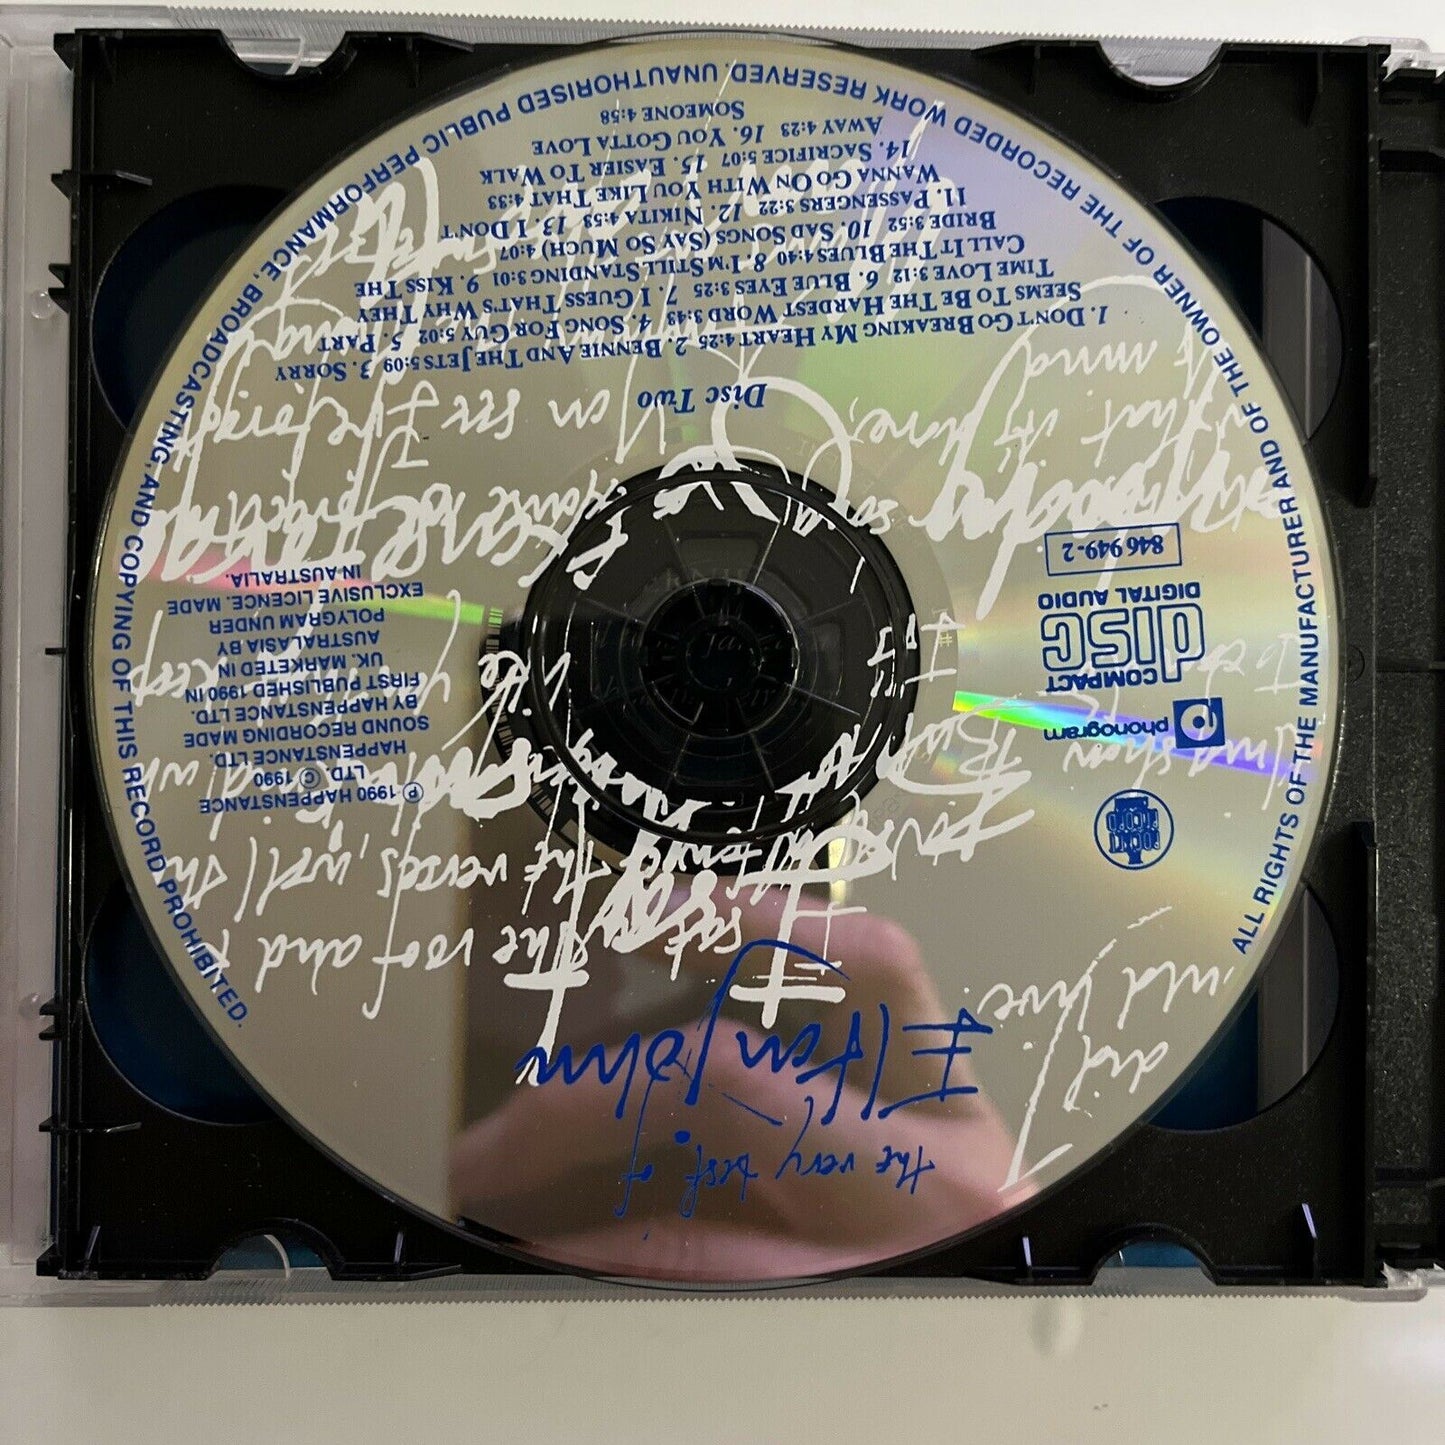 the very best of
Elton John
ALL RIGHTS OF THE MANUFACTURER AND OF THE OWNER OF THE RECORDED WORK RESERVED. UNAUTHORISED PUBLIC PERFORMANCE, BROADCASTING, AND COPYING OF THIS RECORD PROHIBITED.
ROCKET
RECORD
phonogram
COMPACT
disc
DIGITAL AUDIO
846 949-2
℗ 1990 HAPPENSTANCE
LTD. © 1990
HAPPENSTANCE LTD.
SOUND RECORDING MADE
BY HAPPENSTANCE LTD.
FIRST PUBLISHED 1990 IN
UK. MARKETED IN
AUSTRALASIA BY
POLYGRAM UNDER
EXCLUSIVE LICENCE. MADE
IN AUSTRALIA.
Disc Two
1. DON'T GO BREAKING MY HEART 4:25 2. BENNIE AND THE JETS 5:09 3. SORRY
SEEMS TO BE THE HARDEST WORD 3:43 4. SONG FOR GUY 5:02 5. PART
TIME LOVE 3:12 6. BLUE EYES 3:25 7. I GUESS THAT'S WHY THEY
CALL IT THE BLUES 4:40 8. I'M STILL STANDING 3:01 9. KISS THE
BRIDE 3:52 10. SAD SONGS (SAY SO MUCH) 4:07
11. PASSENGERS 3:22 12. NIKITA 4:53 13. I DON'T
WANNA GO ON WITH YOU LIKE THAT 4:33
14. SACRIFICE 5:07 15. EASIER TO WALK
AWAY 4:23 16. YOU GOTTA LOVE
SOMEONE 4:58
sat on the roof and
the verses, well
You see I've forgotten